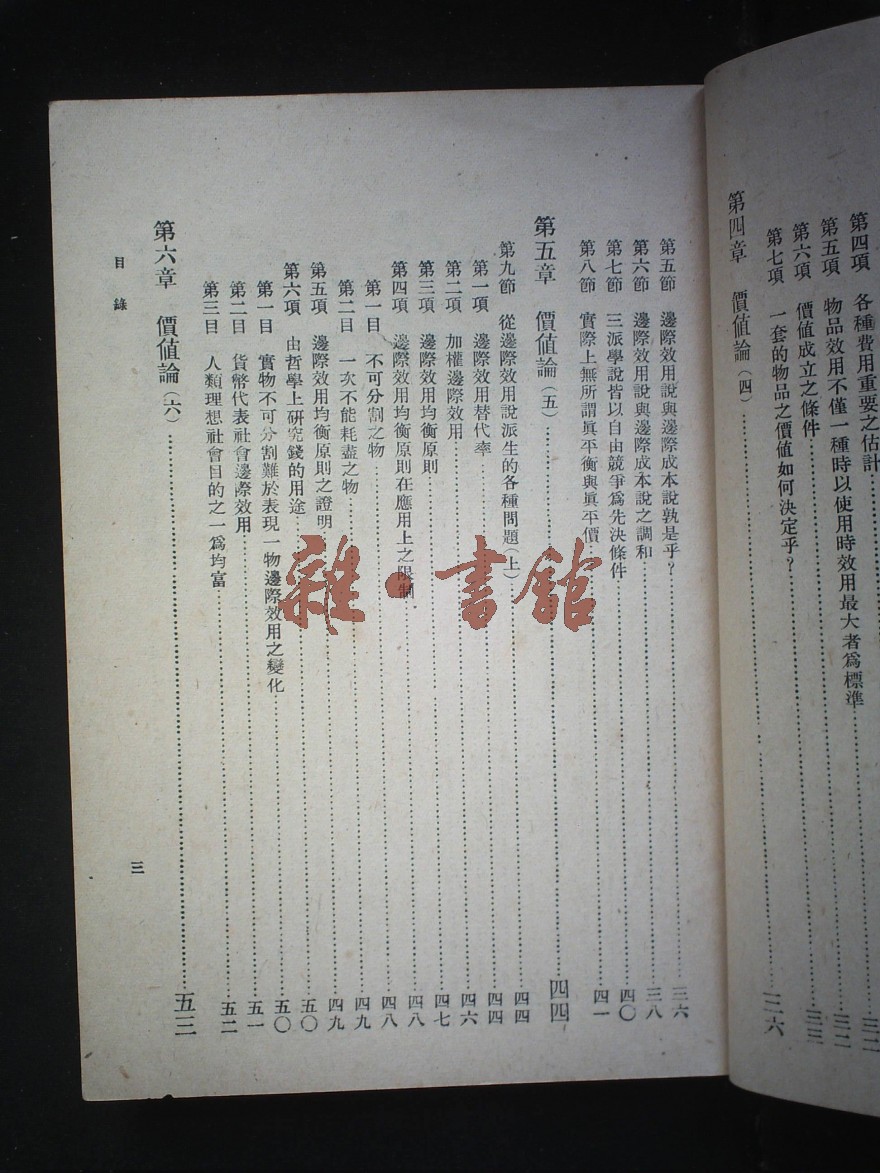 第四項　各種費用重要之估計……三二
第五項　物品效用不僅一種時以使用時效用最大者爲標準……三二
第六項　價值成立之條件……三三
第七項　一套的物品之價值如何決定乎？
第四章　價值論（四）……三六
第五節　邊際效用說與邊際成本說孰是乎？……三六
第六節　邊際效用說與邊際成本說之調和……三八
第七節　三派學說皆以自由競爭爲先決條件……四〇
第八節　實際上無所謂眞平衡與眞平價……四一
第五章　價値論（五）……四四
第九節　從邊際效用說派生的各種問題（上）……四四
第一項　邊際效用替代率……四四
第二項　加權邊際效用……四六
第三項　邊際效用均衡原則……四七
第四項　邊際效用均衡原則在應用上之限制……四八
第一目　不可分割之物……四八
第二目　一次不能耗盡之物……四九
第五項　邊際效用均衡原則之證明……四九
第六項　由哲學上研究錢的用途……五〇
第一目　實物不可分割難於表現一物邊際效用之變化……五〇
第二目　貨幣代表社會邊際效用……五一
第三目　人類理想社會目的之一爲均富……五二
第六章　價値論（六）……五三
目錄
三
雜·書館